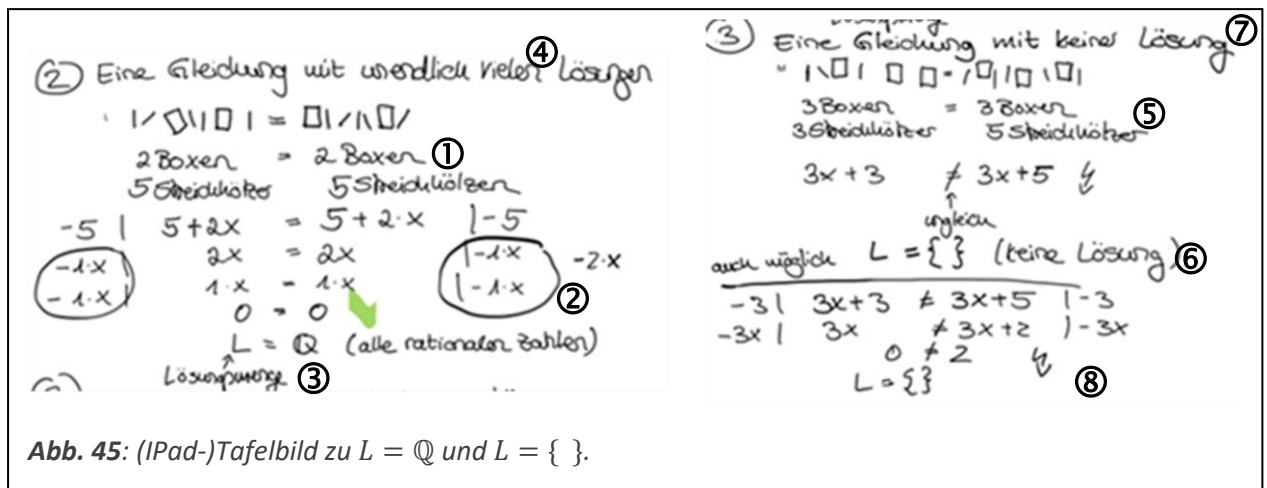 ② Eine Gleichung mit unendlich vielen Lösungen ④
I / ▯ I I ▯ I = ▯ I / I \ ▯ /
2 Boxen = 2 Boxen ①
5 Streichhölzer 5 Streichhölzen
-5 | 5+2x = 5+2·x |-5
-1·x | 2x = 2x |-1·x -2·x
-1·x | 1·x = 1·x |-1·x ②
0 = 0
L = ℚ (alle rationalen Zahlen)
Lösungsmenge ③
③ Eine Gleichung mit keiner Lösung ⑦
I \ ▯ I ▯ ▯ = / ▯ I I ▯ I ▯ I
3 Boxen = 3 Boxen ⑤
3 Streichhölzer 5 Streichhölzer
3x+3 ≠ 3x+5 ↯
ungleich
auch möglich L = { } (keine Lösung) ⑥
-3 | 3x+3 ≠ 3x+5 |-3
-3x | 3x ≠ 3x+2 |-3x
0 ≠ 2 ↯
L = { } ⑧
Abb. 45: (IPad-)Tafelbild zu L = ℚ und L = { }.